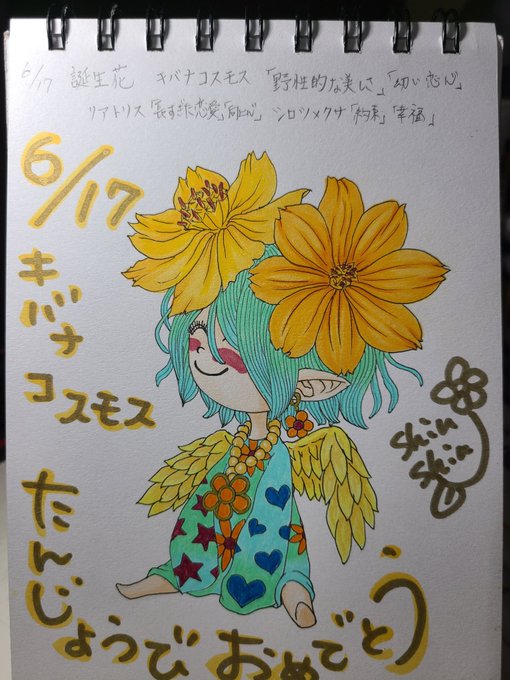 6/17 誕生花 キバナコスモス 「野性的な美しさ」「幼い恋心」
リアトリス「長すぎた恋愛」「向上心」 シロツメクサ「約束」「幸福」
6/17
キバナ
コスモス
たんじょうび おめでとう
shin
shin